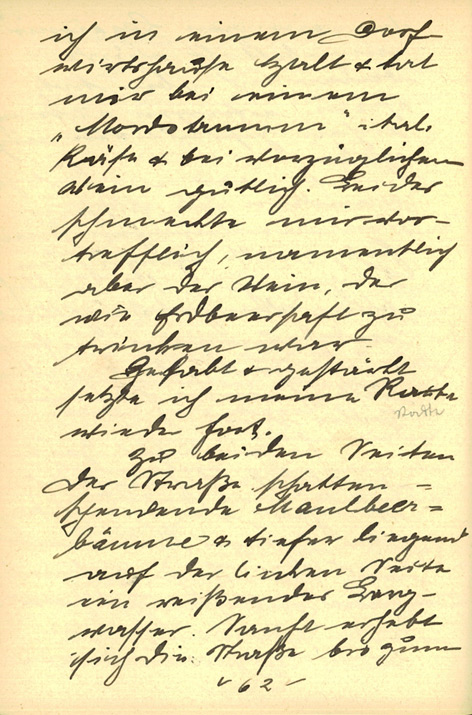 ich in einem Dorf-
wirtshause Halt & tat
mir bei einem
"Mordstrumm" ital.
Käse & bei vorzüglichem
Wein gütlich. Beides
schmeckte mir vor-
trefflich, namentlich
aber der Wein, der
wie Erdbeersaft zu
trinken war.
Gelabt & gestärkt
setzte ich meine
wieder fort.
Zu beiden Seiten
der Straße schatten-
spendende Maulbeer-
bäume & tiefer liegend
auf der linken Seite
ein reißendes Berg-
wasser. Sanft erhebt
sich die Straße bis zum
- 62 -